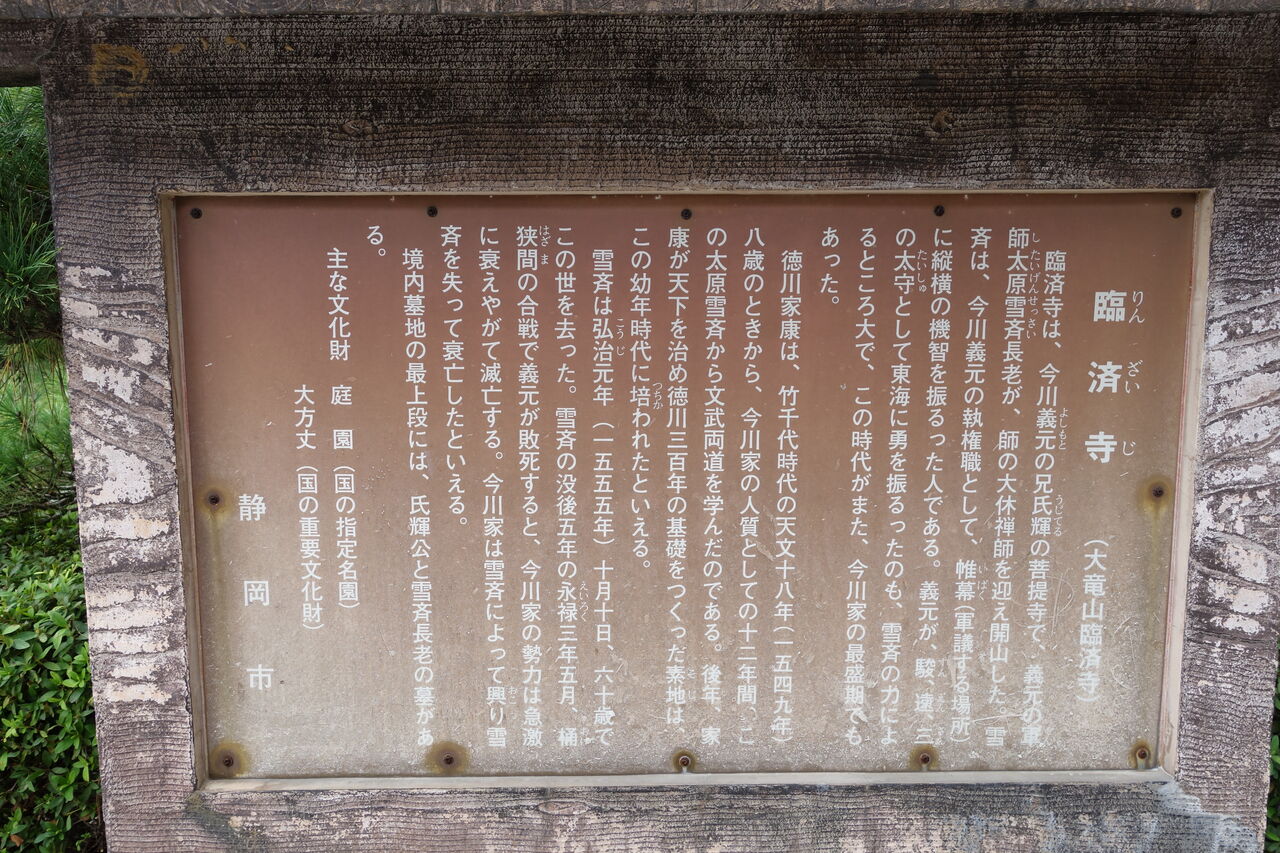 臨済寺 (大竜山臨済寺)
臨済寺は、今川義元の兄氏輝の菩提寺で、義元の軍
師太原雪斉長老が、師の大休禅師を迎え開山した。雪
斉は、今川義元の執権職として、帷幕(軍議する場所)
に縦横の機智を振るった人である。義元が、駿、遠、三
の太守として東海に勇を振るったのも、雪斉の力によ
るところ大で、この時代がまた、今川家の最盛期でも
あった。
徳川家康は、竹千代時代の天文十八年(一五四九年)
八歳のときから、今川家の人質としての十二年間、こ
の太原雪斉から文武両道を学んだのである。後年、家
康が天下を治め徳川三百年の基礎をつくった素地は、
この幼年時代に培われたといえる。
雪斉は弘治元年(一五五五年)十月十日、六十歳で
この世を去った。雪斉の没後五年の永禄三年五月、桶
狭間の合戦で義元が敗死すると、今川家の勢力は急激
に衰えやがて滅亡する。今川家は雪斉によって興り雪
斉を失って衰亡したといえる。
境内墓地の最上段には、氏輝公と雪斉長老の墓があ
る。
主な文化財 庭園(国の指定名園)
大方丈(国の重要文化財)
静岡市